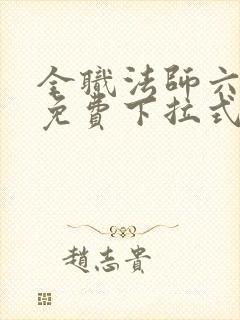 全職法師六
免費下拉式
趙志貴